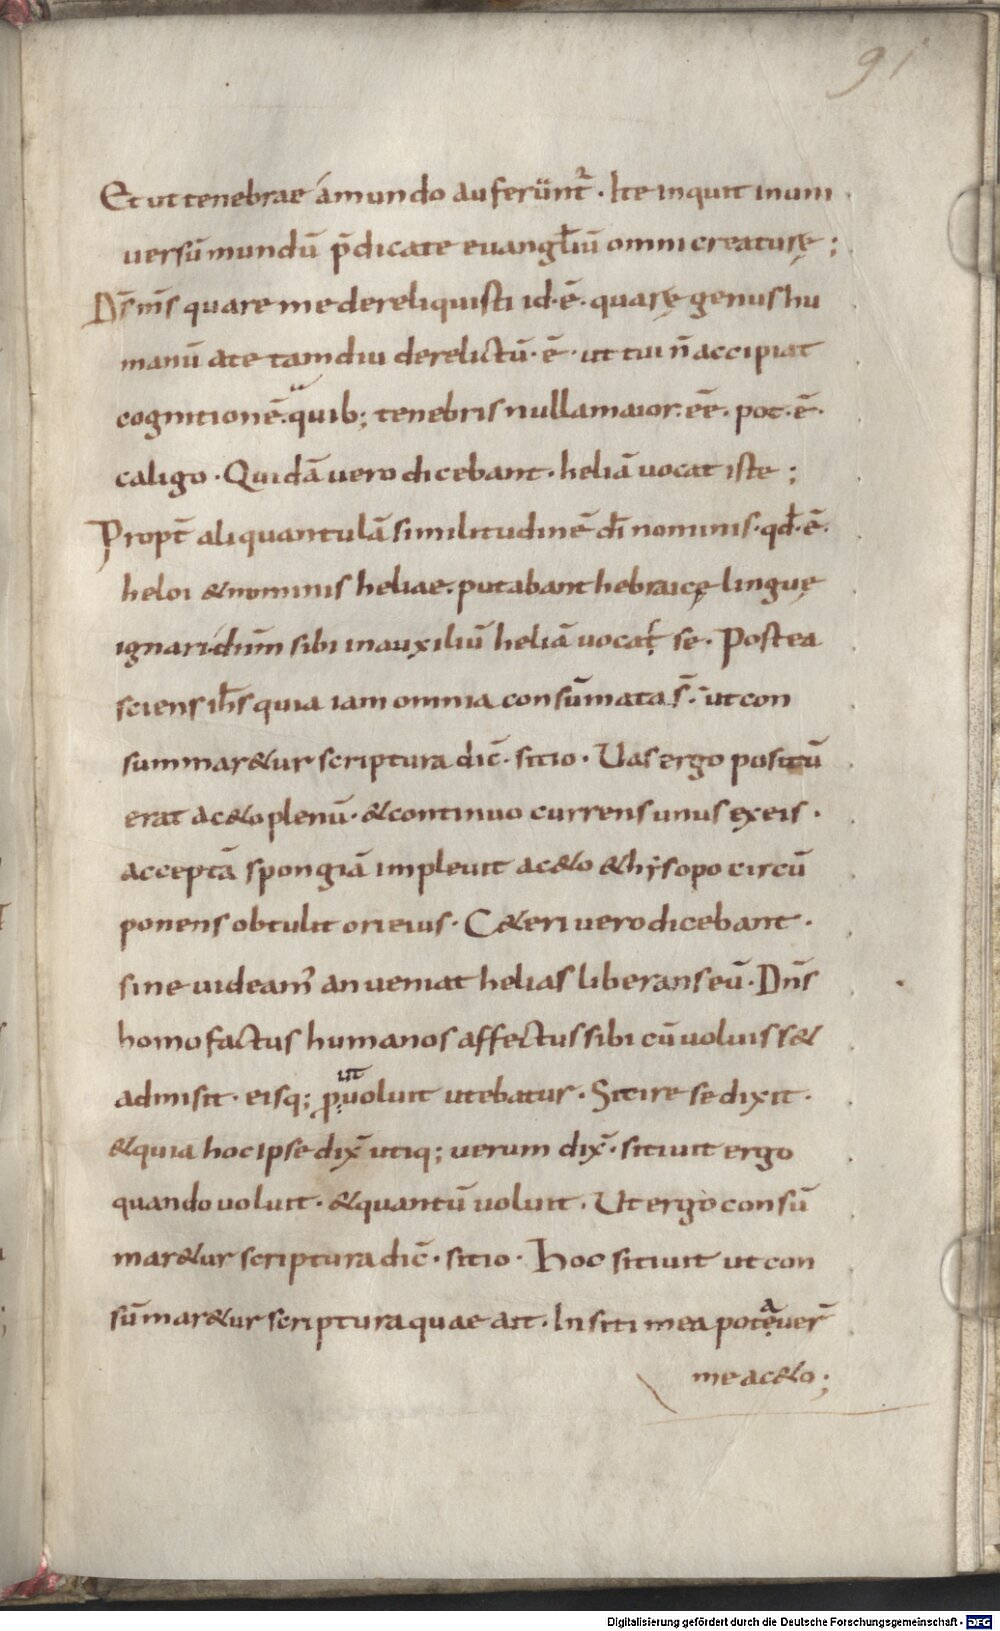 91
Et ut tenebrae á mundo auferunt᷑ · Ite inquit in uni
uersū mundū p̄dicate euangłiū omni creaturę ;
D̄s m̄s quare me dereliquisti id · ē · quarę genus hu
manū a te tam diu derelictū · ē · ut tui n̄ accipiat
cognitionē · quib; tenebris nulla maior · eē · pot · ē ·
caligo · Quidā uero dicebant · heliā uocat iste ;
Propt̄ aliquantulā similitudinē dī nominis · qđ · ē ·
heloi & nominis heliae · putabant hebraicę linguę
ignari dn̄m sibi in auxiliū heliā uocaṝ se · Postea
sciens ih̄s quia iam omnia consūmata s̄ · ut con
summar&ur scriptura dic̄ · sitio · Uas ergo positū
erat ac&o plenū · & continuo currens unus ex eis ·
acceptā spongiā impleuit ac&o & hẏsopo circū
ponens obtulit ori eius · C&eri uero dicebant ·
sine uideam᾽ an ueniat helias liberans eū · Dn̄s
homo factus humanos affectus sibi cū uoluiss&
admisit · eisq; ꝓ ut uoluit utebatur · Sitire se dixit ·
& quia hoc ipse dix̄ utiq; uerum dix̄ · sitiuit ergo
quando uoluit · & quantū uoluit · Ut ergo consū
mar&ur scriptura dic̄ · sitio · Hoc sitiuit ut con
sūmar&ur scriptura quae ait · In siti mea potauer̄
me ac&o ;
Digitalisierung gefördert durch die Deutsche Forschungsgemeinschaft - DFG